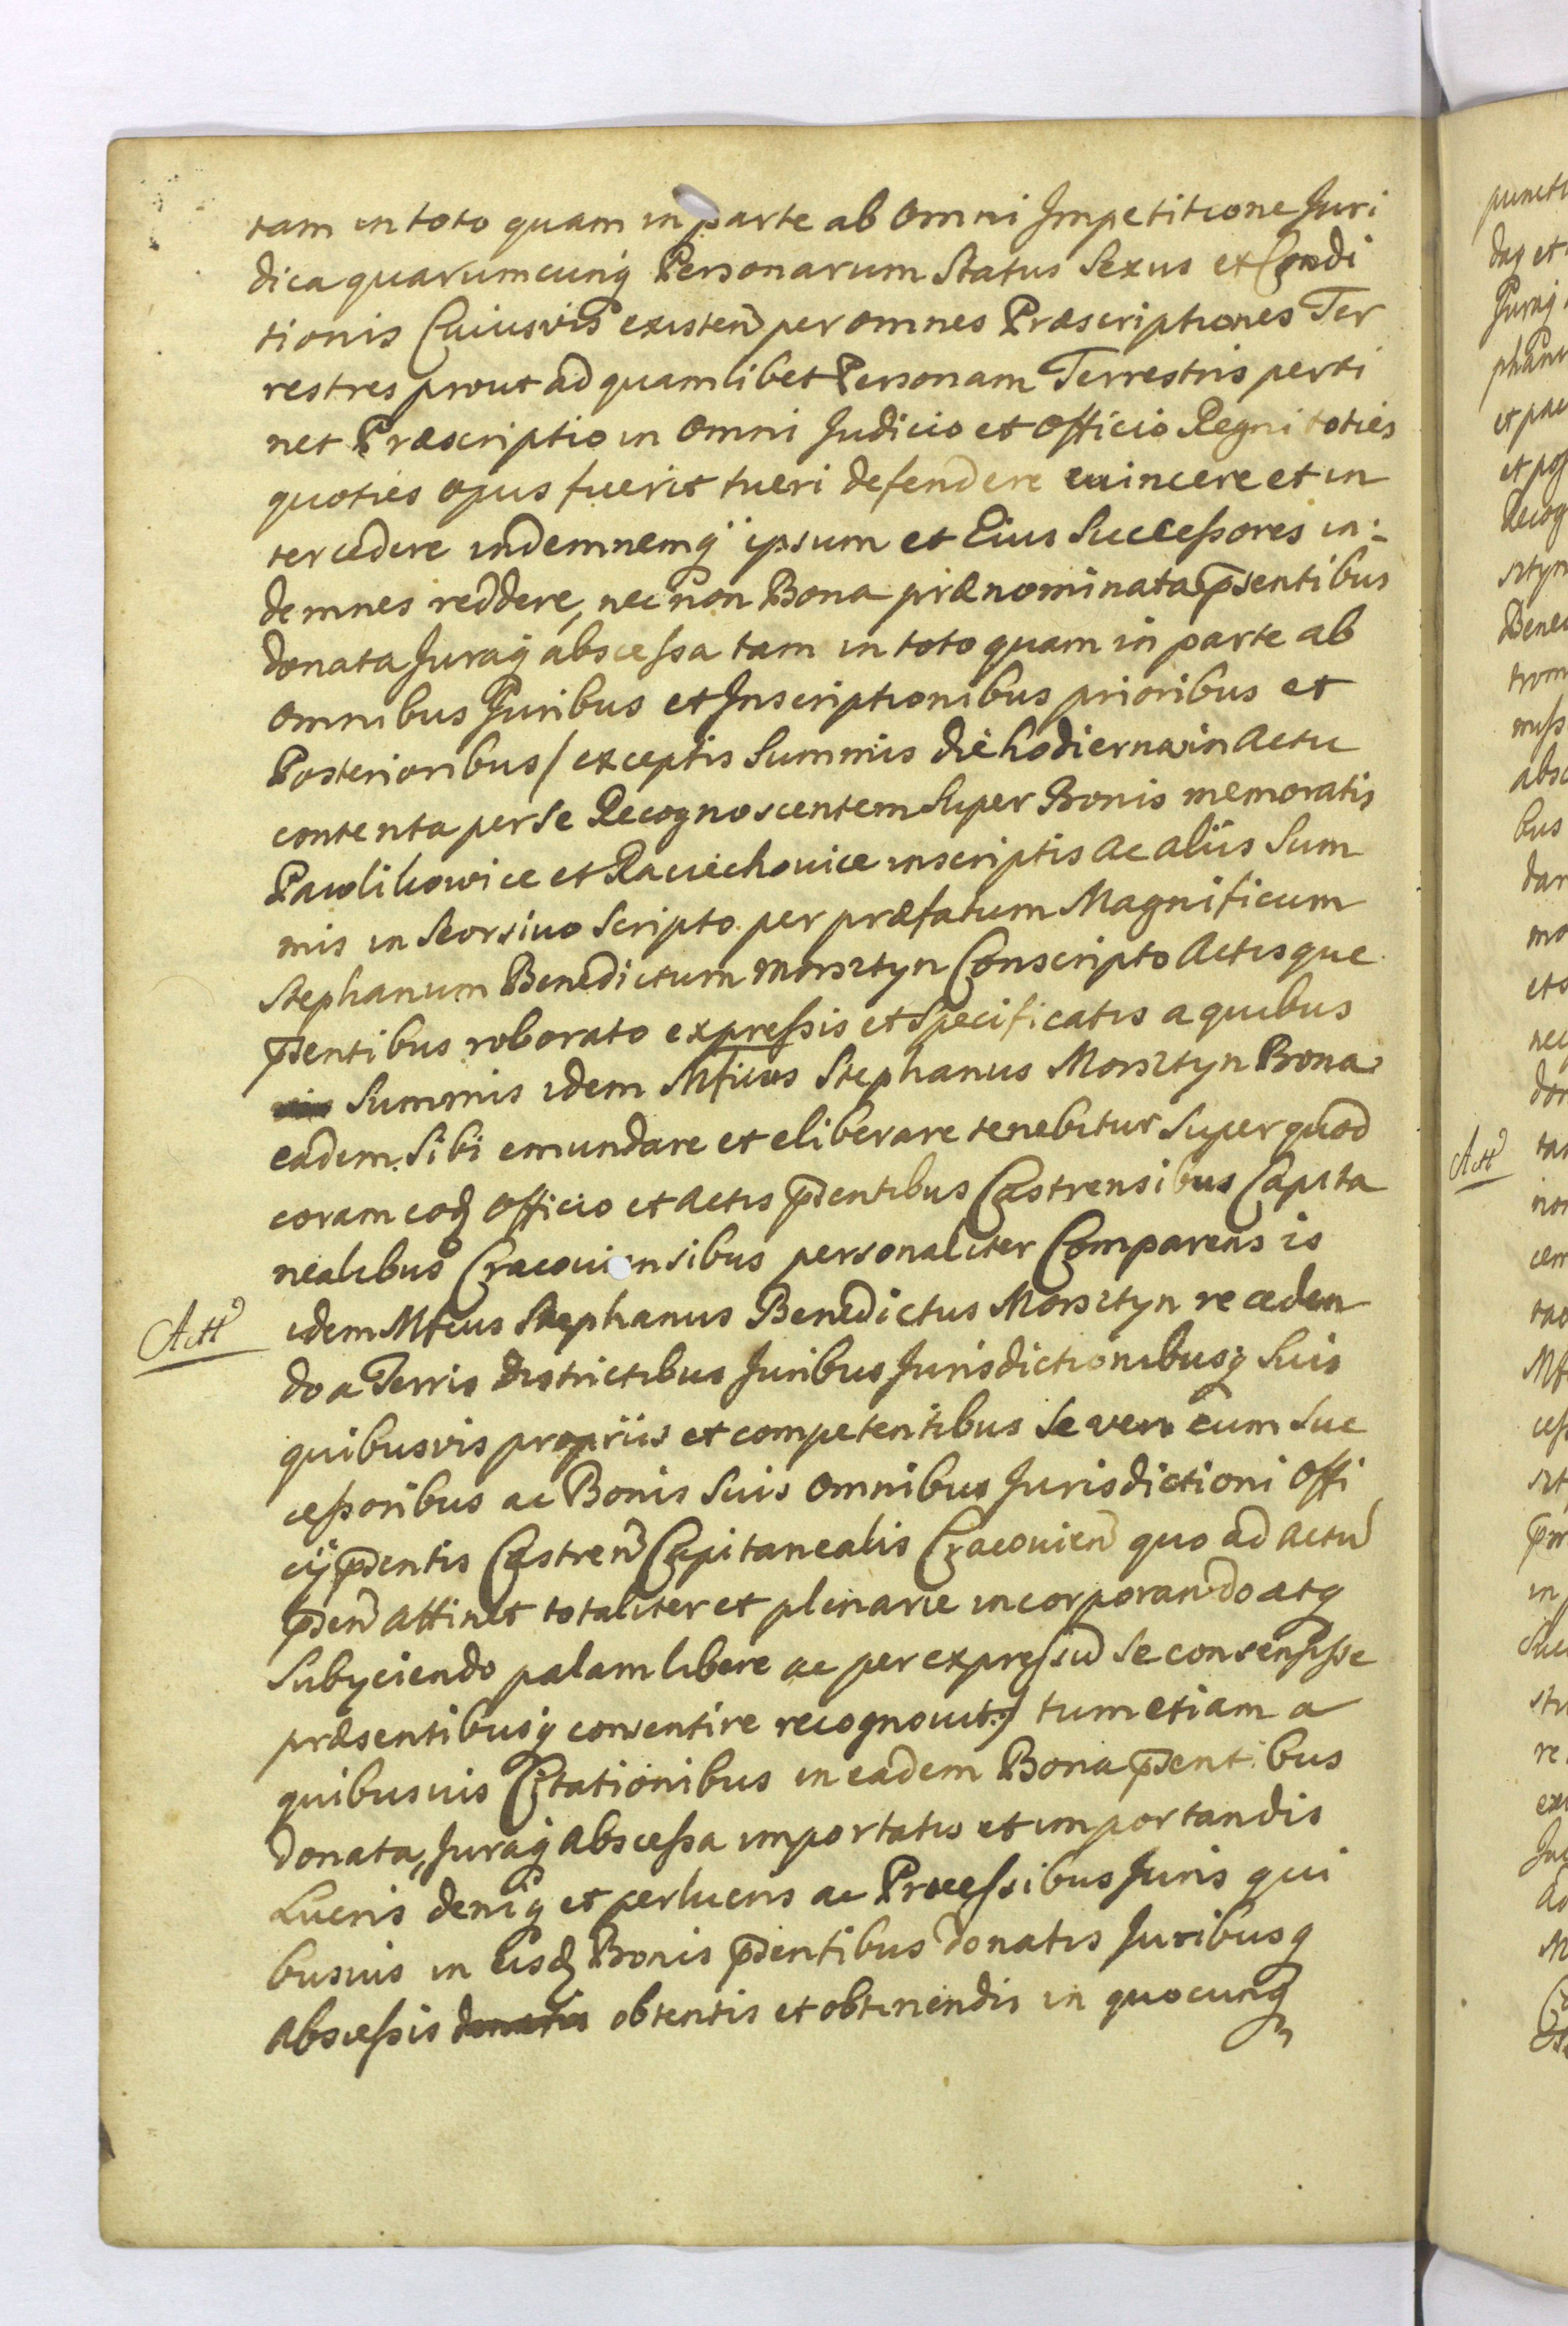 tam in toto quam in parte ab Omni Impetitione Juri
dica quarumcunq Personarum Status Sexus et Condi
tionis Cuiusvis existen per omnes Præscriptiones Ter
restres prout ad quamlibet Personam Terrestris perti
net Præscriptio in Omni Judicio et Officio Regni toties
quoties opus fuerit tueri defendere euincere et in
tercedere indemnemq ipsum et Eius Successores in:
demnes reddere, nec non Bona prænominata pšentibus
donata Juraq abscessa tam in toto quam in parte ab
Omnibus Juribus et Inscriptionibus prioribus et
Posterioribus / exceptis Summis die hodierna in Actu
contenta per se Recognoscentem Super Bonis memoratis
Pawlikowice et Raciechouice inscriptis ac aliis Sum
mis in Seorsiuo Scripto per præfatum Magnificum
Stephanum Benedictum Morsztyn Conscripto Actisque
pšentibus roborato expressis et Specificatis a quibus
Summis idem Mficus Stephanus Morsztyn Bona
eadem Sibi emundare et eliberare tenebitur Super quod
coram eoq Officio et Actis pšentibus Castrensibus Capita
nealibus Cracouiensibus personaliter Comparens is
idem Mficus Stephanus Benedictus Morsztyn receden
do a Terris Districtibus Juribus Jurisdictionibusq Suis
quibusvis propriis et competentibus Se vero cum Suc
cessoribus ac Bonis Suis Omnibus Jurisdictioni Offi
cij pšentis Castren Capitanealis Cracouien quo ad Actu
pšen attinet totaliter et plenarie incorporando atq
Subyciendo palam libere ac per expressu Se consensisse
præsentibusq consentire recognouit /) tum etiam a
quibusuis Citationibus in eadem Bona pšentibus
donata, Juraq Abscessa importatis et importandis
Lucris deniq et perlucris ac Processibus Juris qui
busuis in Eisq Bonis pšentibus donatis Juribusq
Abscessis donatis obtentis et obtinendis in quocunq
Att